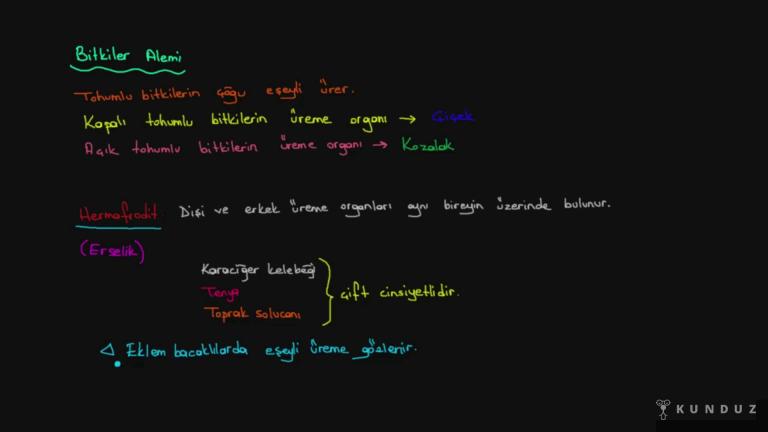 Bitkiler Alemi
Tohumlu bitkilerin çoğu eşeyli ürer.
Kapalı tohumlu bitkilerin üreme organı → Çiçek
Açık tohumlu bitkilerin üreme organı → Kozalak
Hermafrodit Dişi ve erkek üreme organları aynı bireyin üzerinde bulunur.
(Erselik)
Karaciğer kelebeği
Tenya
Toprak solucanı
çift cinsiyetlidir.
Eklem bacaklılarda eşeyli üreme gözlenir.
KUNDUZ